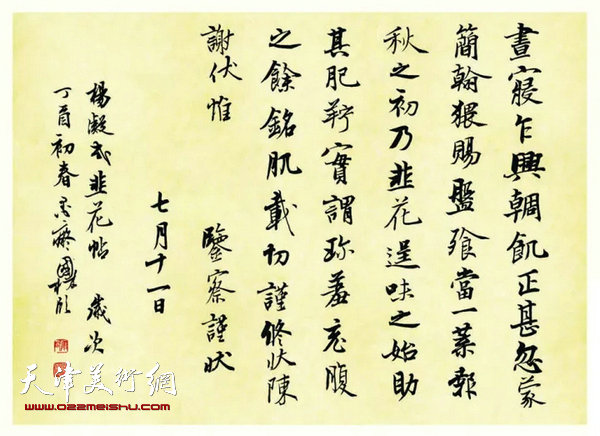 晝寢乍興輖飢正甚忽蒙
簡翰猥賜盤飧當一葉報
秋之初乃韭花逞味之始助
其肥羜實謂珍羞充腹
之餘銘肌載切謹修狀陳
謝伏惟 鑒察謹狀
七月十一日
楊凝式韭花帖 歲次
丁酉初春
天津美術網
www.022meishu.com